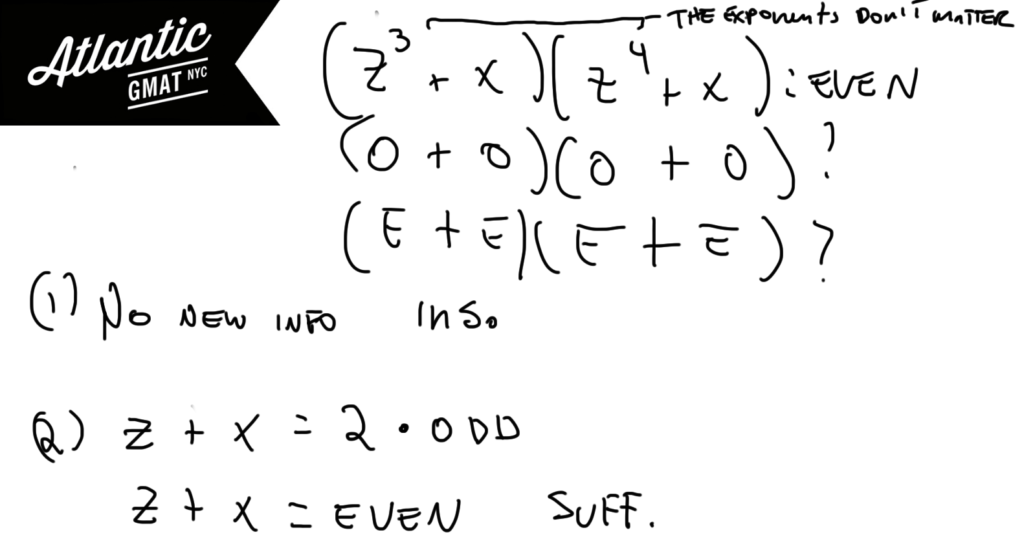 Atlantic
GMAT NYC
THE Exponents Don't MATTER
(z³ + x)(z⁴ + x) : EVEN
(O + O)(O + O) ?
(E + E)(E + E) ?
(1) No NEW INFO InS.
2) z + x = 2 • ODD
z + x = EVEN SUFF.